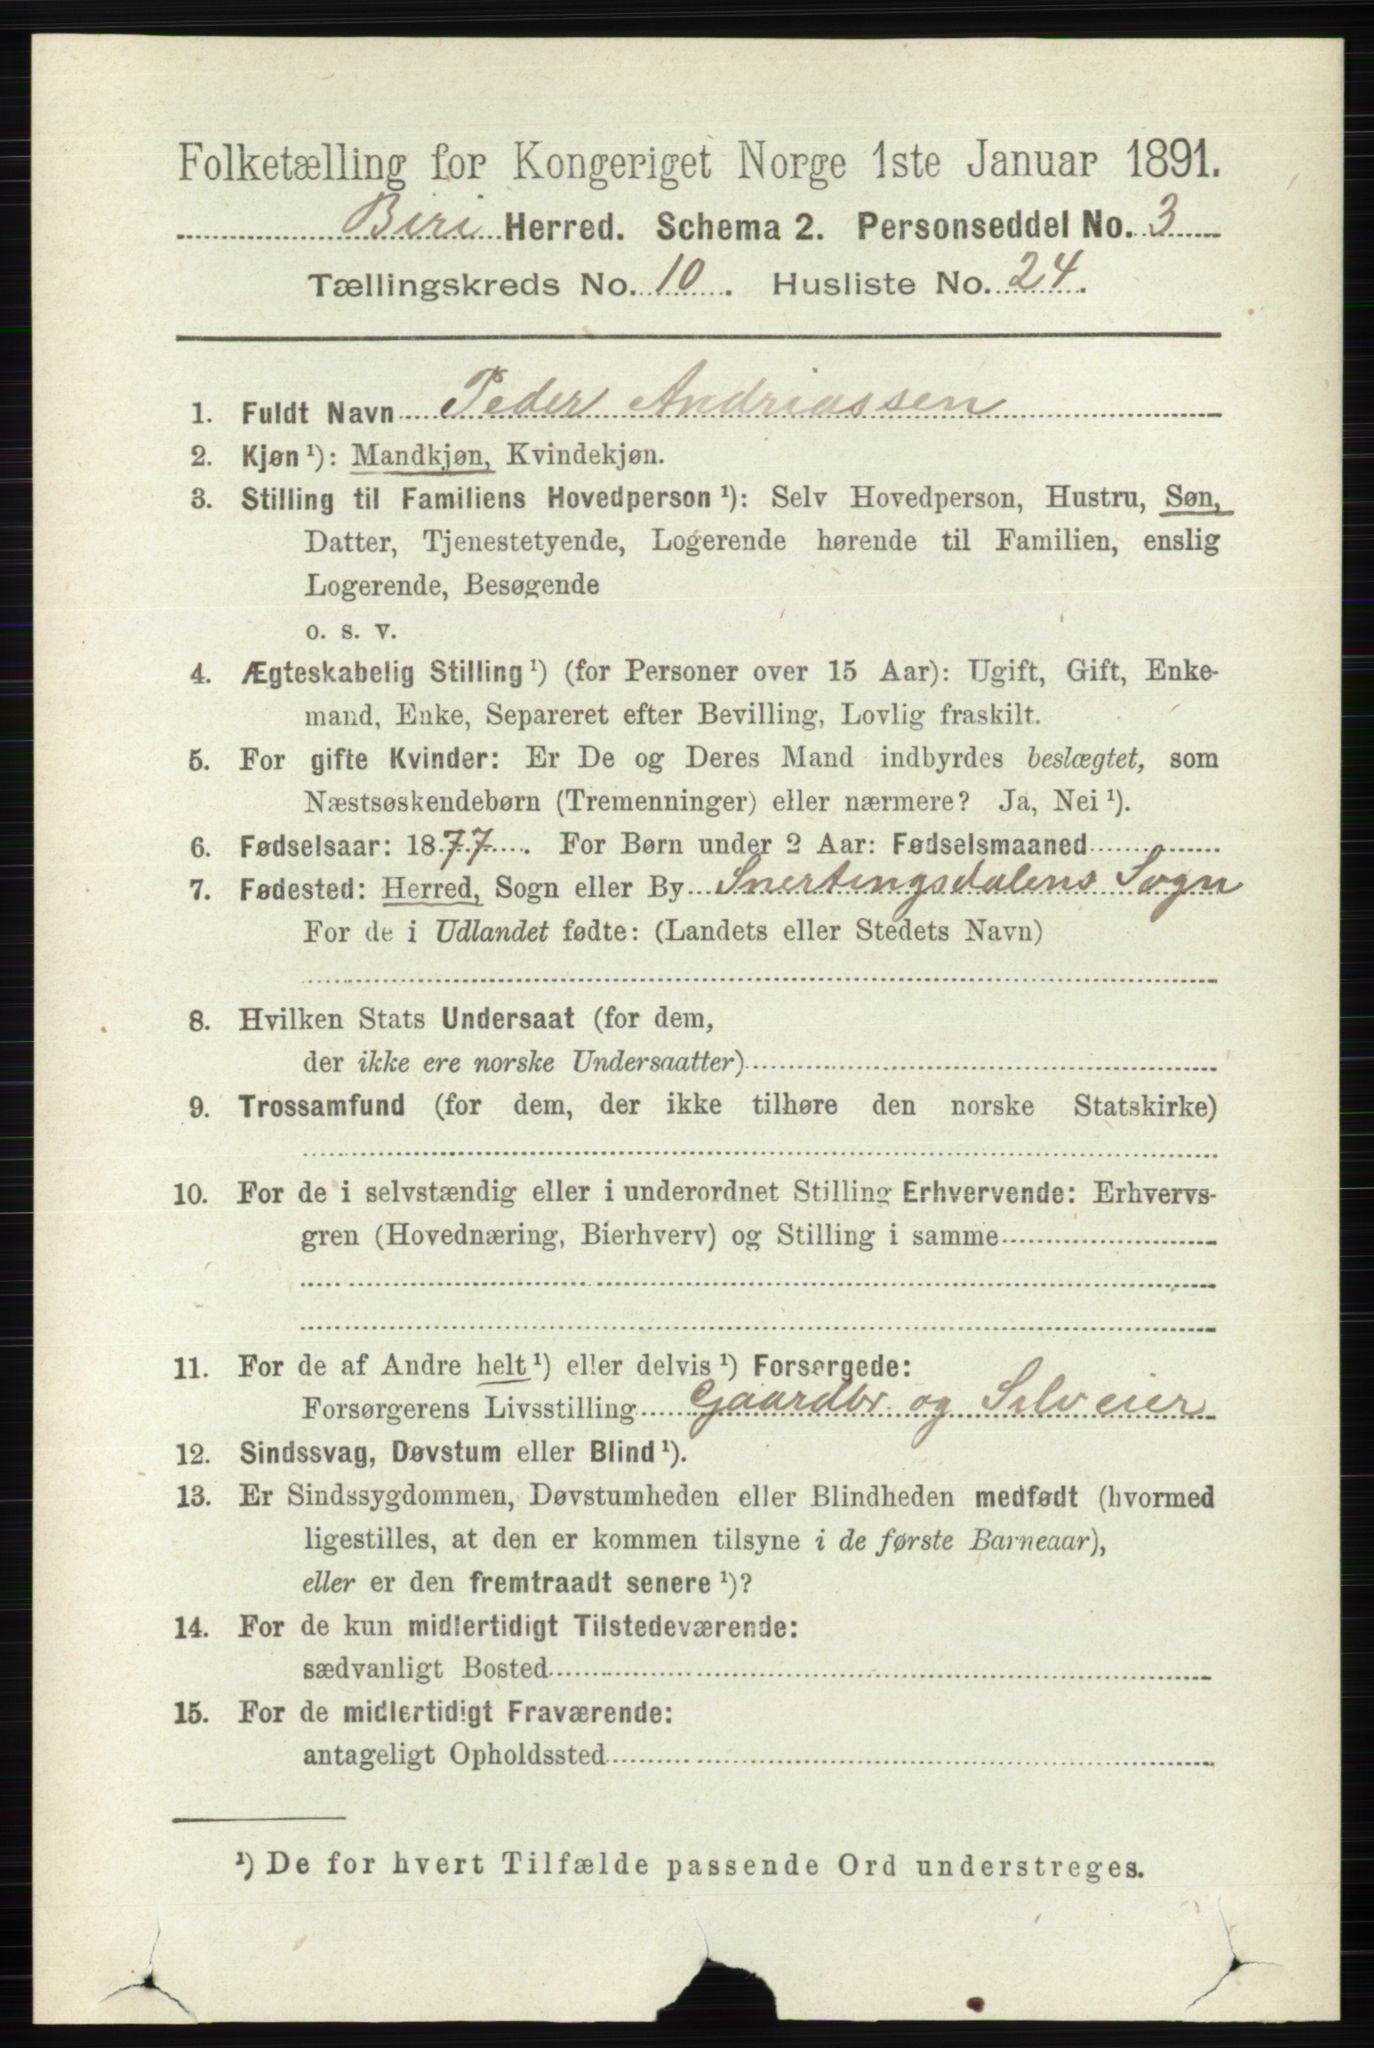 Folketælling for Kongeriget Norge 1ste Januar 1891.
Biri Herred. Schema 2. Personseddel No. 3
Tællingskreds No. 10. Husliste No. 24.
1. Fuldt Navn Peder Andriassen
2. Kjøn ¹): Mandkjøn, Kvindekjøn.
3. Stilling til Familiens Hovedperson ¹): Selv Hovedperson, Hustru, Søn,
Datter, Tjenestetyende, Logerende hørende til Familien, enslig
Logerende, Besøgende
o. s. v.
4. Ægteskabelig Stilling ¹) (for Personer over 15 Aar): Ugift, Gift, Enke-
mand, Enke, Separeret efter Bevilling, Lovlig fraskilt.
5. For gifte Kvinder: Er De og Deres Mand indbyrdes beslægtet, som
Næstsøskendebørn (Tremenninger) eller nærmere? Ja, Nei ¹).
6. Fødselsaar: 1877. For Børn under 2 Aar: Fødselsmaaned
7. Fødested: Herred, Sogn eller By Snertingsdalens Sogn
For de i Udlandet fødte: (Landets eller Stedets Navn)
8. Hvilken Stats Undersaat (for dem,
der ikke ere norske Undersaatter)
9. Trossamfund (for dem, der ikke tilhøre den norske Statskirke)
10. For de i selvstændig eller i underordnet Stilling Erhvervende: Erhvervs-
gren (Hovednæring, Bierhverv) og Stilling i samme
11. For de af Andre helt ¹) eller delvis ¹) Forsørgede:
Forsørgerens Livsstilling Gaardbr og Selveier
12. Sindssvag, Døvstum eller Blind ¹).
13. Er Sindssygdommen, Døvstumheden eller Blindheden medfødt (hvormed
ligestilles, at den er kommen tilsyne i de første Barneaar),
eller er den fremtraadt senere ¹)?
14. For de kun midlertidigt Tilstedeværende:
sædvanligt Bosted
15. For de midlertidigt Fraværende:
antageligt Opholdssted
¹) De for hvert Tilfælde passende Ord understreges.